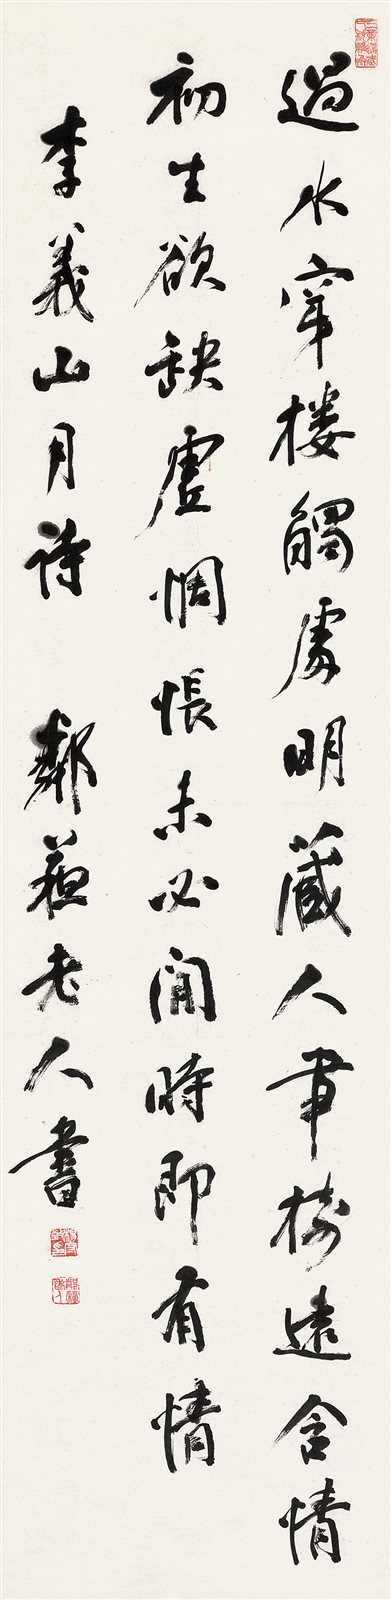 過水穿樓觸處明藏人帶樹遠含情
初生欲缺虛惆悵未必閒時即有情
李義山月詩 鄰蘇老人書